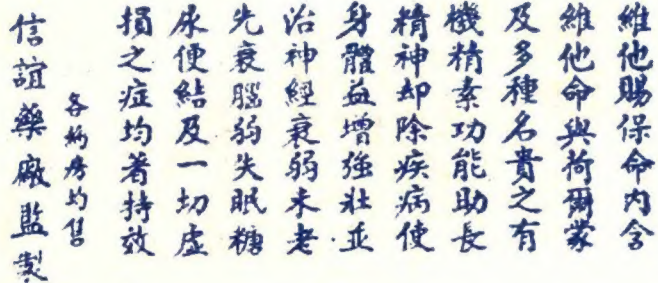 維他賜保命內含
維他命與荷爾蒙
及多種名貴之有
機精素功能助長
精神却除疾病使
身體益增強壯並
治神經衰弱未老
先衰腦弱失眠糖
尿便結及一切虛
損之症均著特效
各藥房均售
信誼藥廠監製